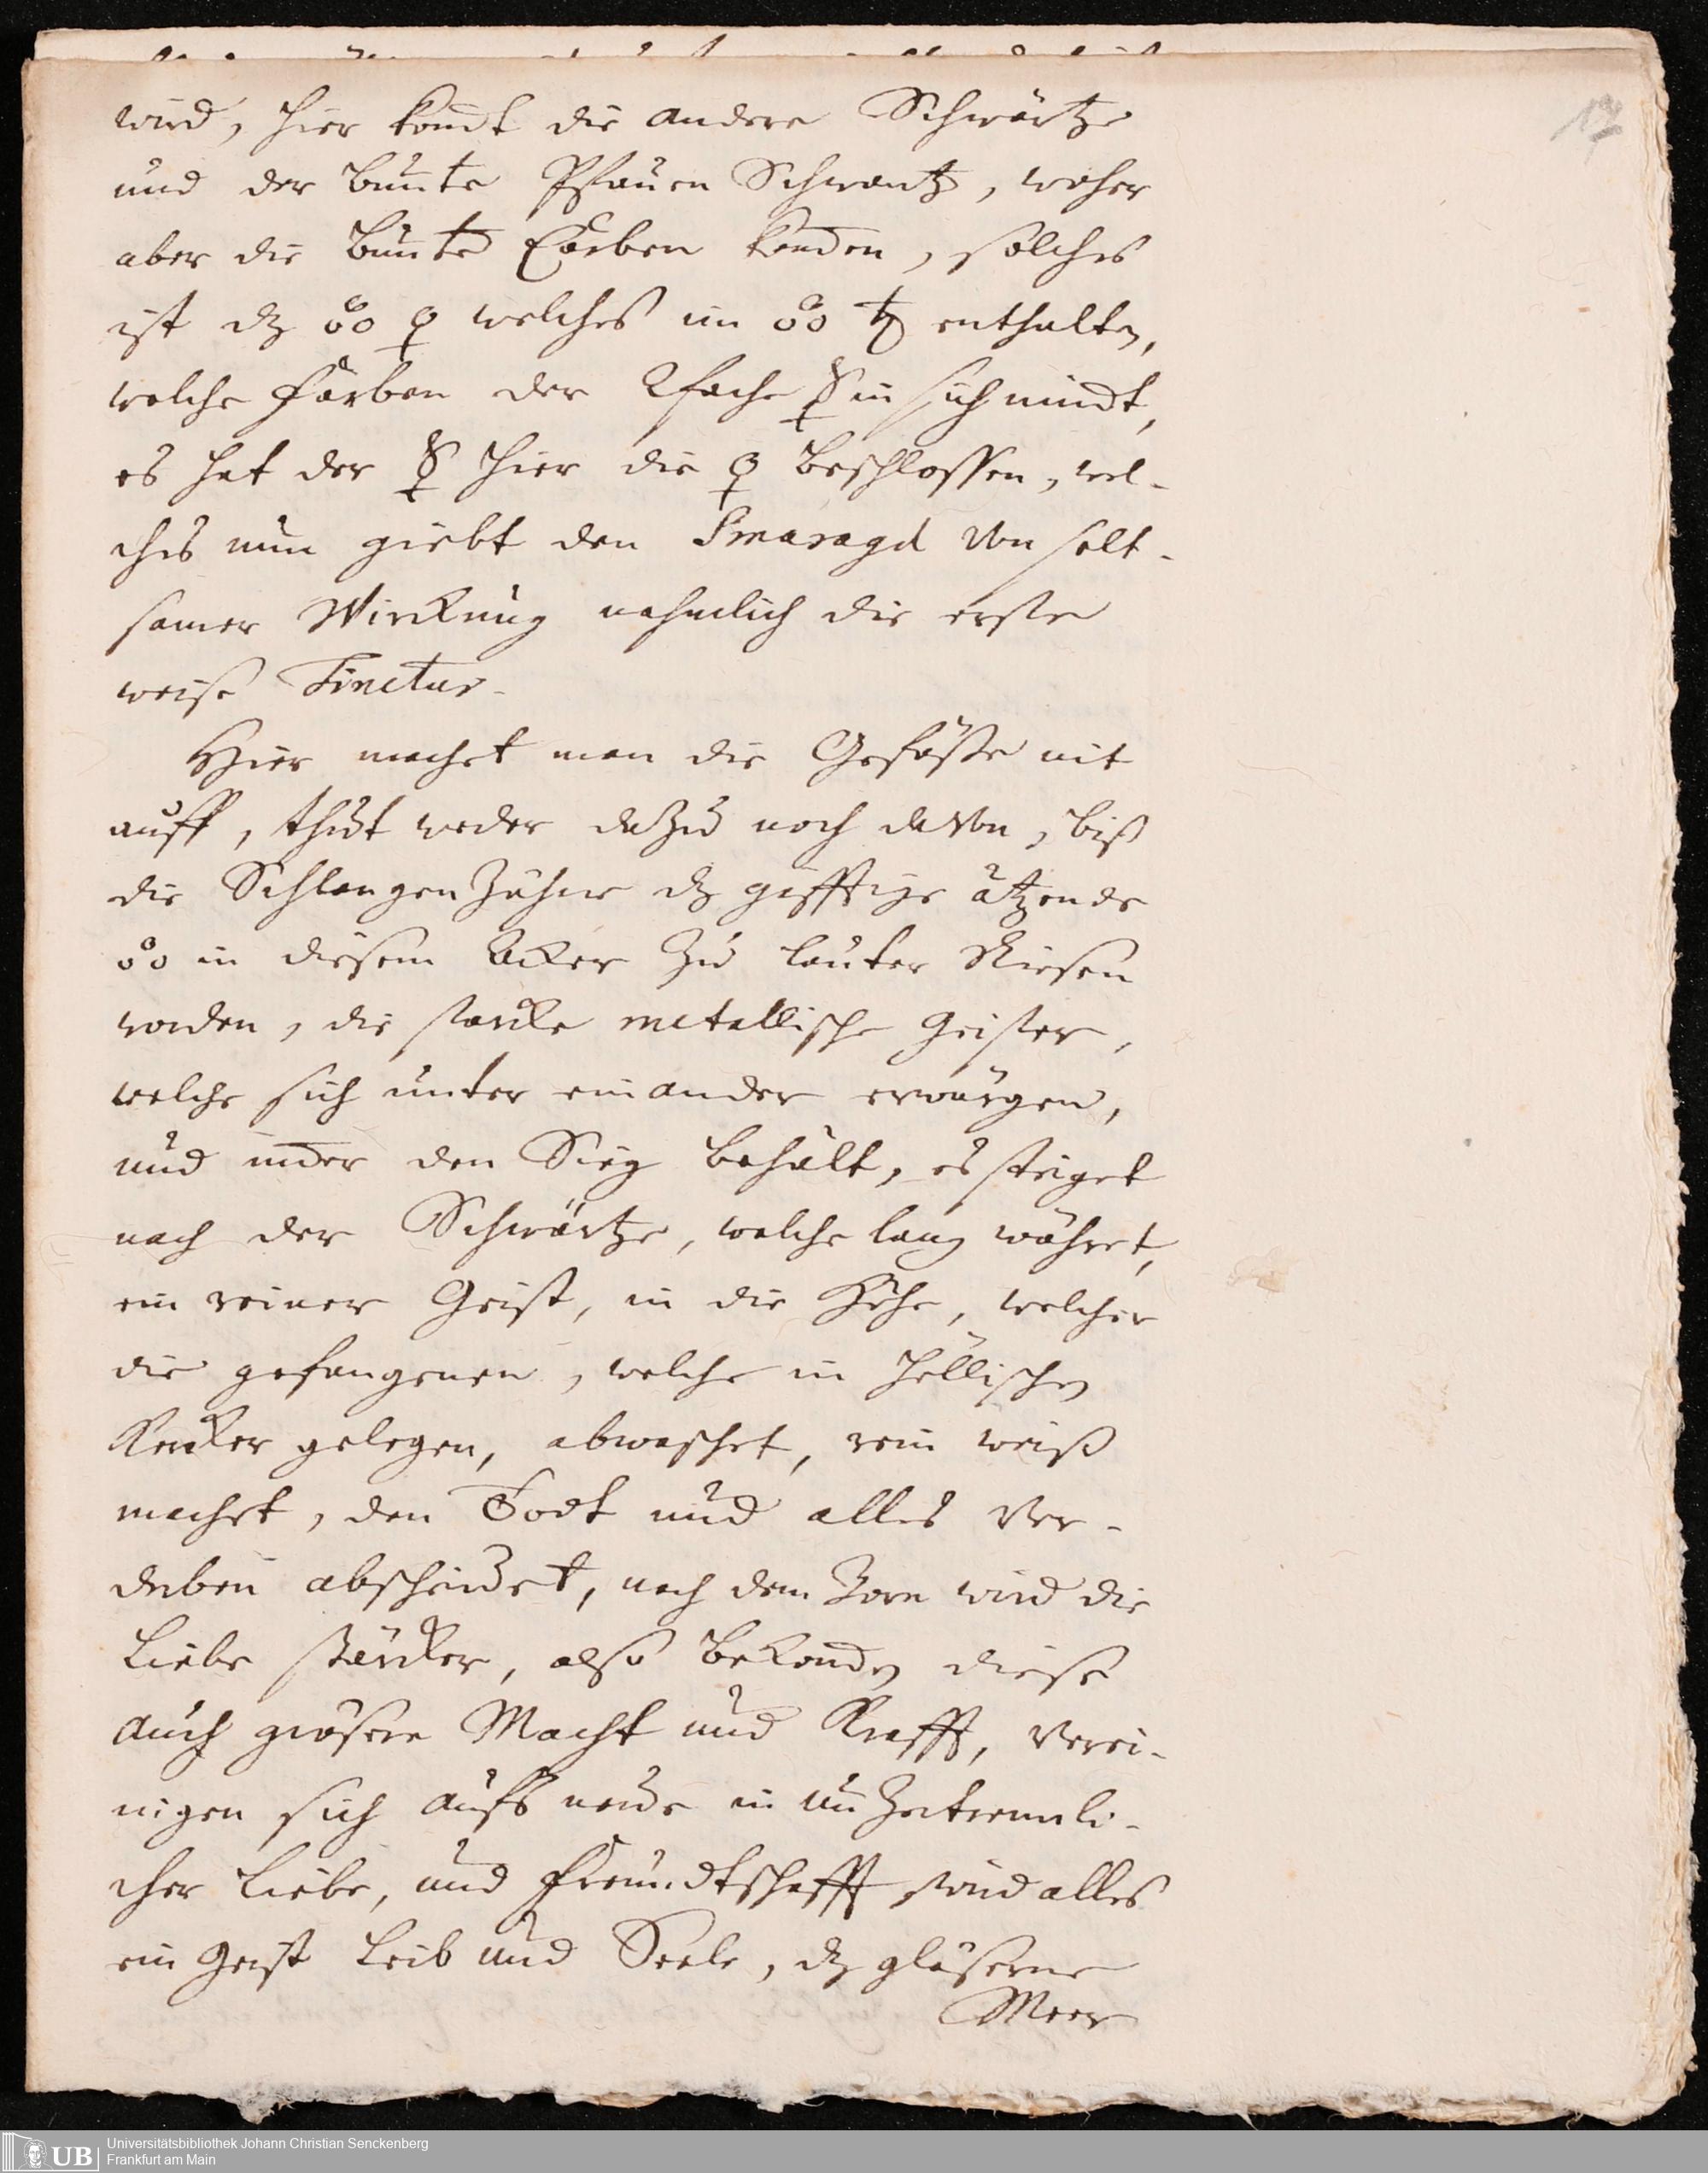 17
wird, hier kom̄t die andere Schwärtze
und der bunte Pfauen Schwantz, woher
aber die bunte Farben kom̄en, solches
ist dz ♁o ♀ welches im ♁o ♄ enthalten,
welche Farben der 2fache ☿ in sich nim̄t,
es hat der ☿ hier die ♀ beschlossen, wel-
ches nun giebt den Smaragd von selt-
samer Wirckung nahmlich die erste
weise Tinctur.
Hier machet man die Gefässe nit
auff, thut weder dazu noch davon, biß
die Schlangen Zähne dz gifftige ätzende
in diesem Acker zu lauter Riesen
worden, die starcke metallische Geister,
welche sich unter einander erwürgen,
und den Sieg behält, es steiget
nach der Schwärtze, welche lang währet,
ein reiner Geist, in die Höhe, welcher
die gefangenen, welche in höllischen
Kercker gelegen, abwaschet, rein weiß
machet, den Todt und alles Ver-
derben abscheidet, nach dem Zorn wird die
Liebe stärcker, also bekom̄en diese
auch grösere Macht und Krafft, verei-
nigen sich aufs neue in unzertrenli-
cher Liebe, und Freundtschafft sind alles
ein Geist Leib und Seele, dz gläserne
Meer
UB
Universitätsbibliothek Johann Christian Senckenberg
Frankfurt am Main